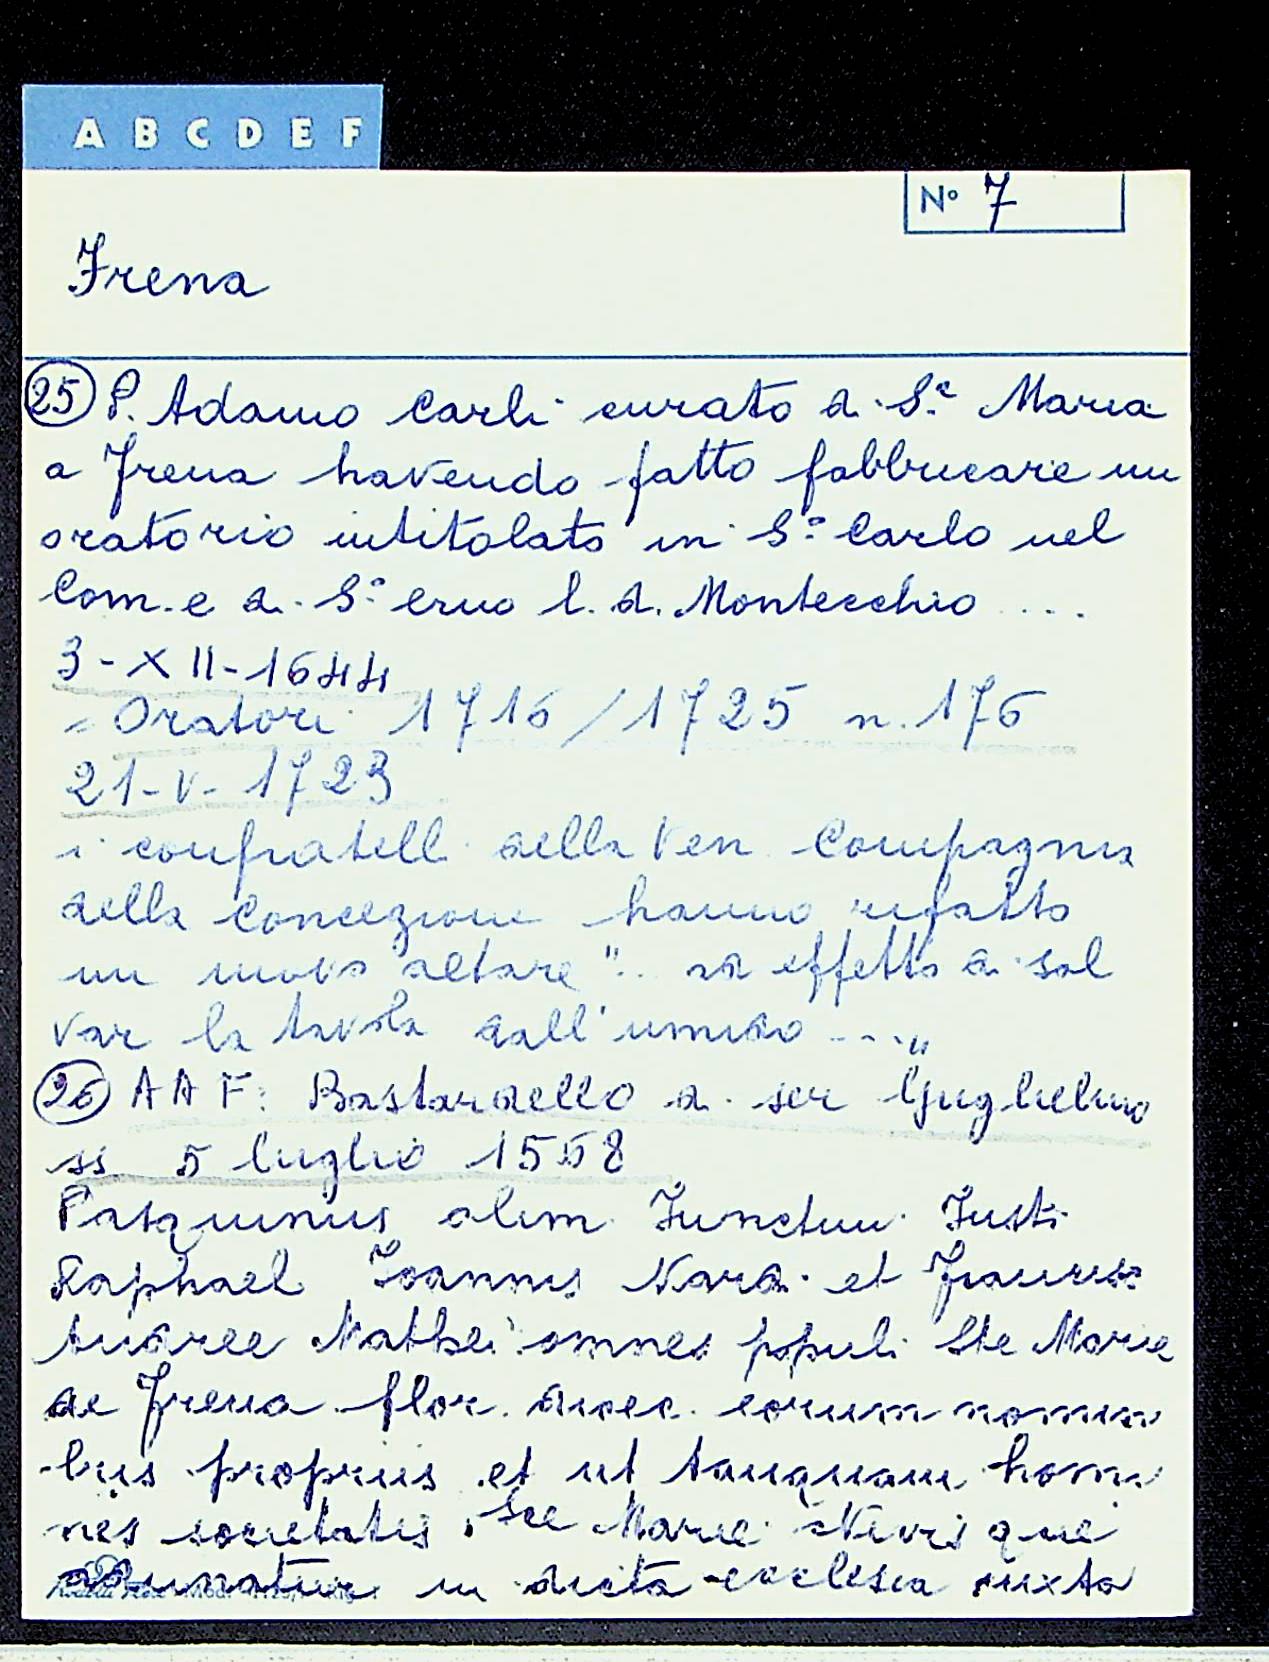 A B C D E F
Nº 7
Frena
25 P. Adamo Carli curato di S.ta Maria
a Frena havendo fatto fabbricare un
oratorio intitolato in S.º Carlo nel
Com.e di S.º l. d. Montecchio ....
3-XII-1644
= Oratori 1716/1725 n. 176
21-V-1723
i confratelli della Ven Compagnia
della Concezione hanno rifatto
un nuovo altare ".. ad effetto di sal
var la tavola dall'umido ...."
26 AAF: Bastardello di ser Guglielmo
ss 5 luglio 1558
Pasquinus olim Justi
Raphael Joannis Nardi et
Andree Mathei omnes populi Ste Marie
de Frena flor. dioec. eorum nomini
bus propriis et ut tanquam homi
nes societatis Sce Marie Nivis que
in dicta ecclesia iuxta